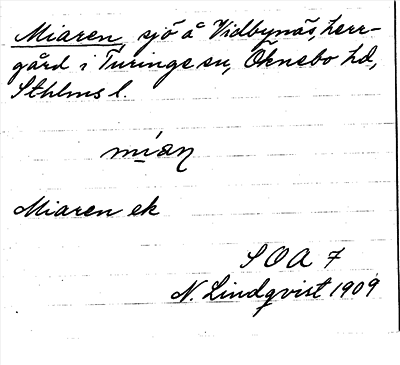 Miaren, sjö å Vidbynäs, herr-
gård i Turinge sn, Öknebo hd,
Sthlms l.
mían
Miaren ek
SOA 7
N. Lindqvist 1909